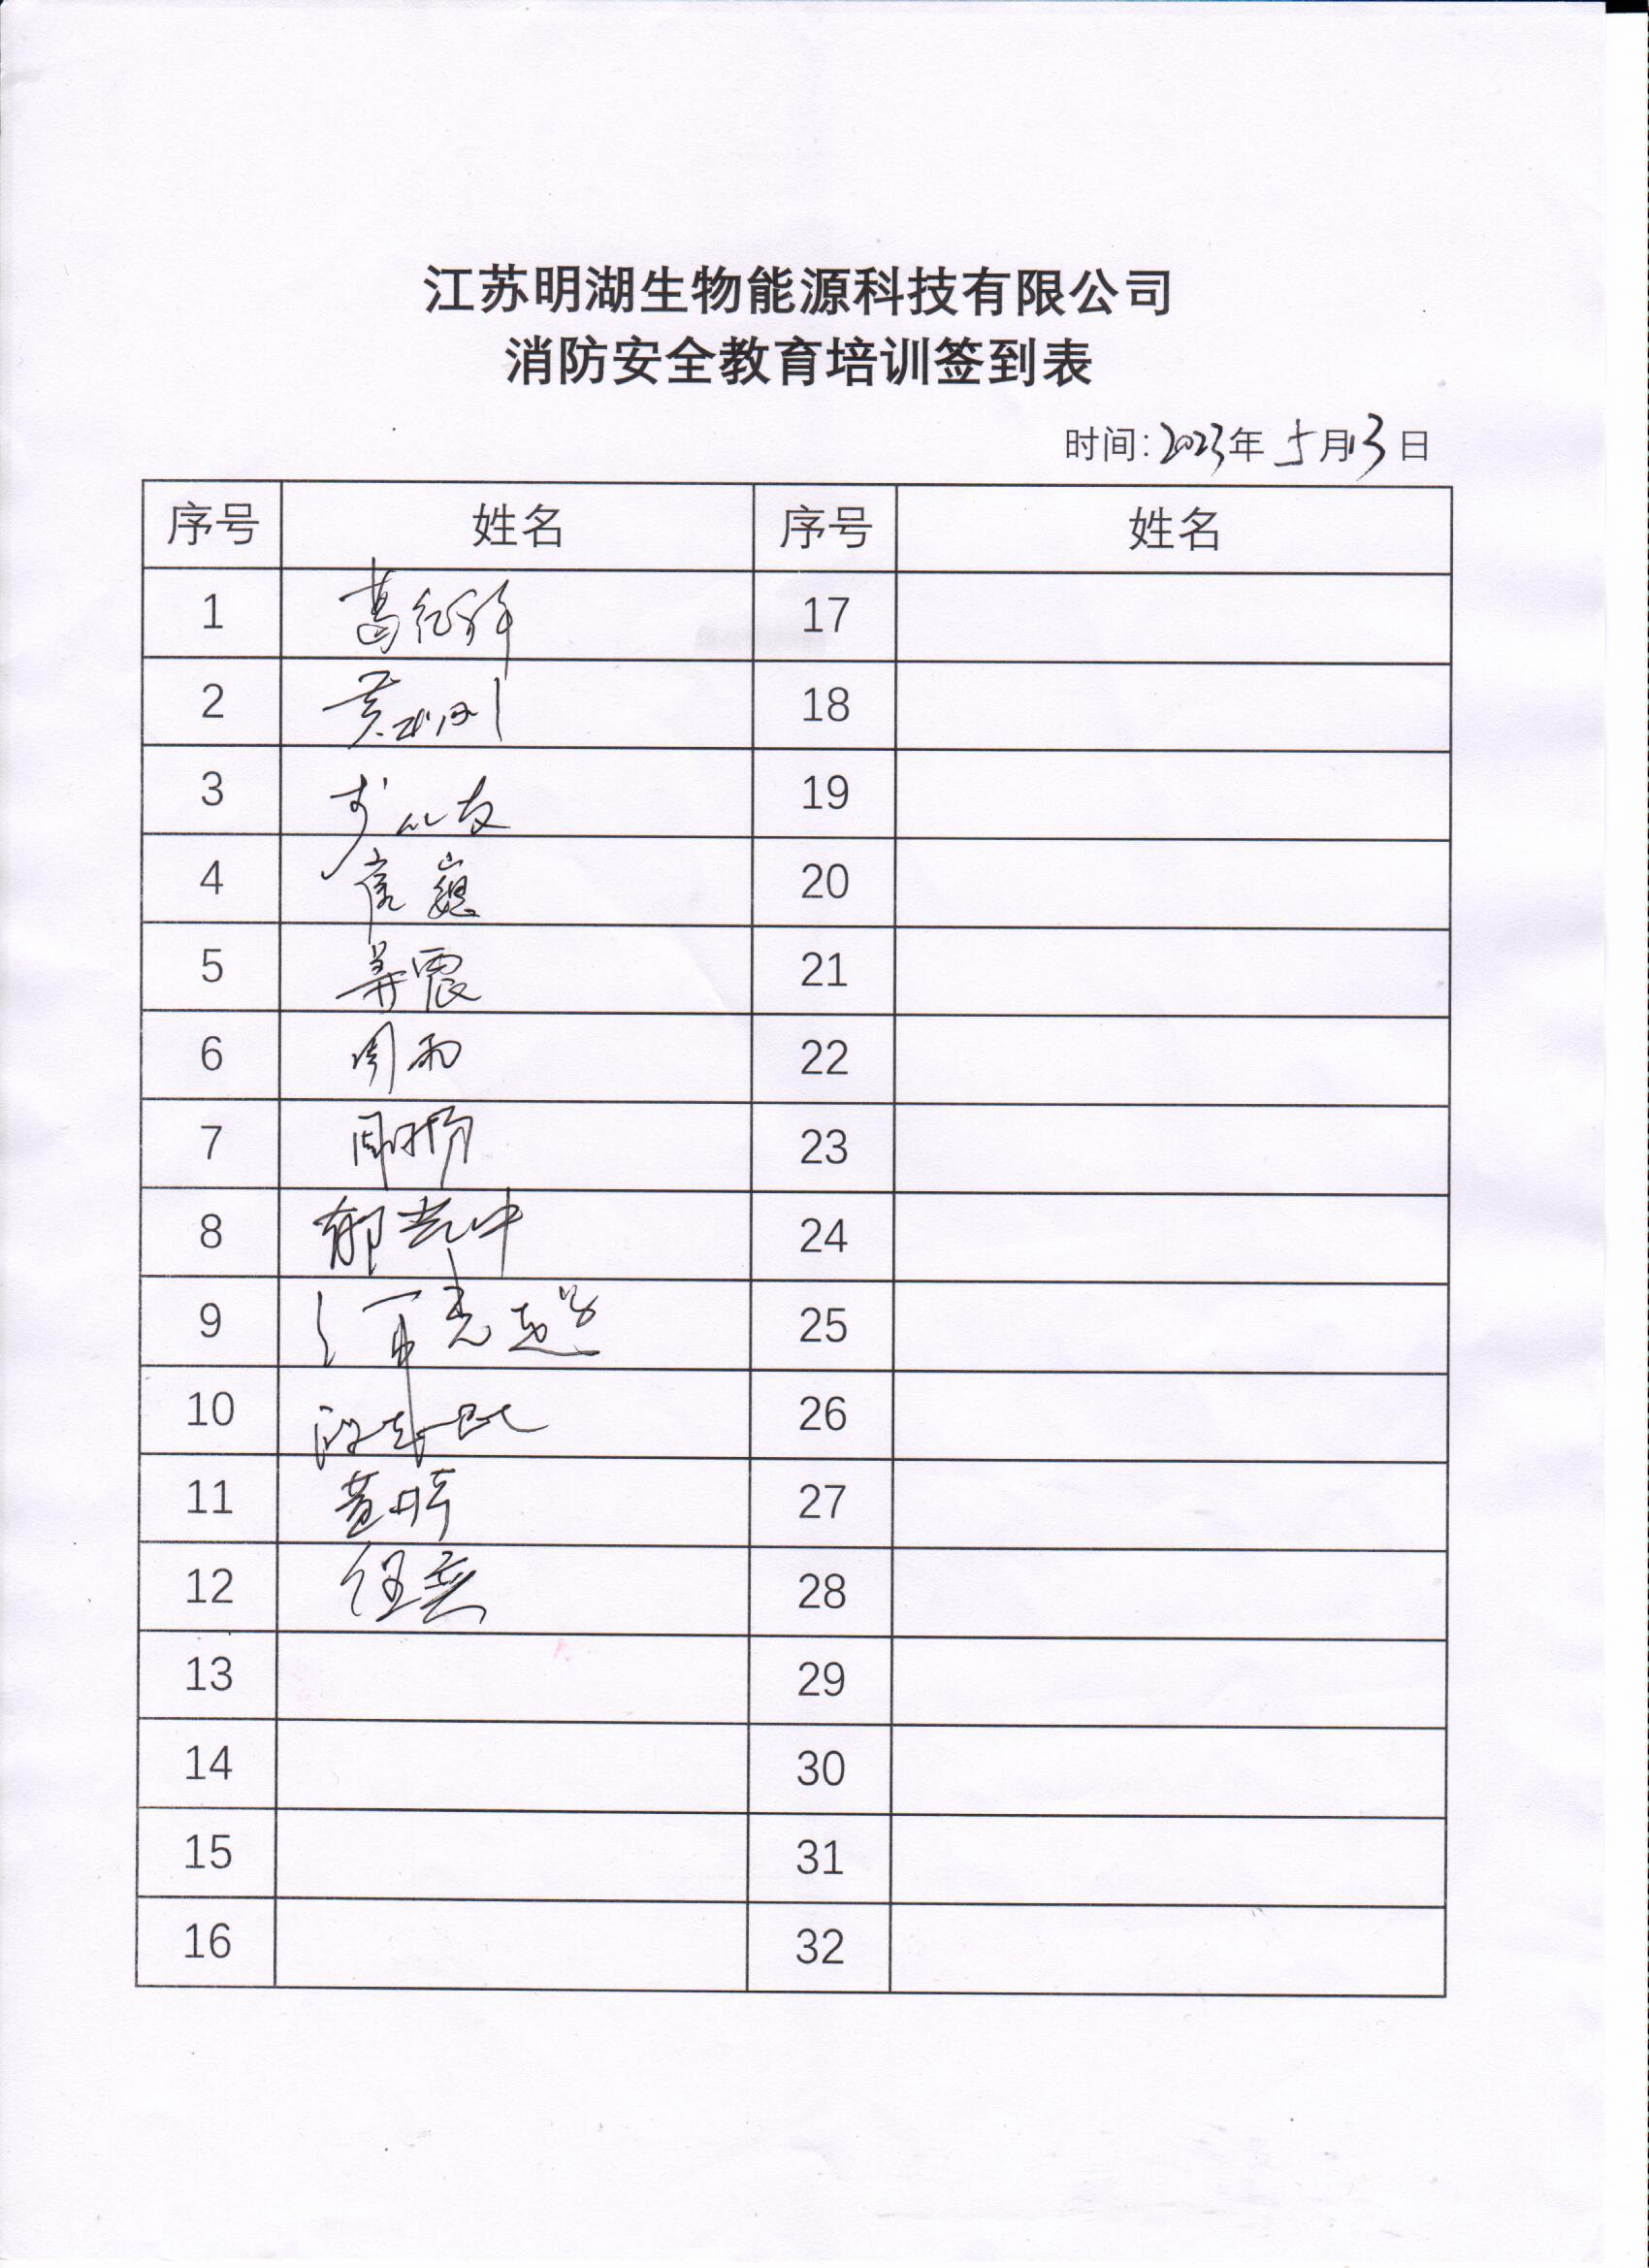 江苏明湖生物能源科技有限公司
消防安全教育培训签到表
时间：2023年5月13日
序号 姓名 序号 姓名
1 17
2 18
3 19
4 20
5 21
6 周雨 22
7 周杨 23
8 24
9 25
10 26
11 27
12 28
13 29
14 30
15 31
16 32